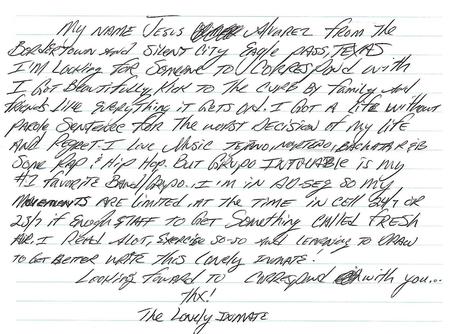 My name Jesus Alvarez from the
Bordertown and Silent City Eagle Pass, Texas
I'm looking for someone to correspond with
I got beautifully kick to the curb by family and
friends like everything it gets old. I got a life without
parole sentence for the worst decision of my life
and regret. I love music Tejano, Norteno, Bachata R&B
some Rap & Hip Hop. But Grupo Intocable is my
#1 favorite band/grupo. I'm in AD-SEG so my
movements are limited. At the time in cell 24/7 or
23/7 if enough staff to get something called fresh
air. I read alot, exercise so-so and learning to draw
to get better write this lonely inmate!
Looking foward to correspond with you...
Thx!
The Lonely Inmate